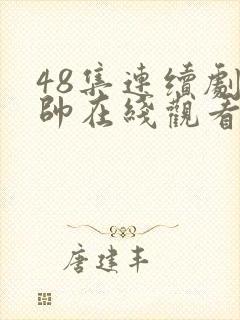 48集連續劇
帥在綫觀看
唐建丰